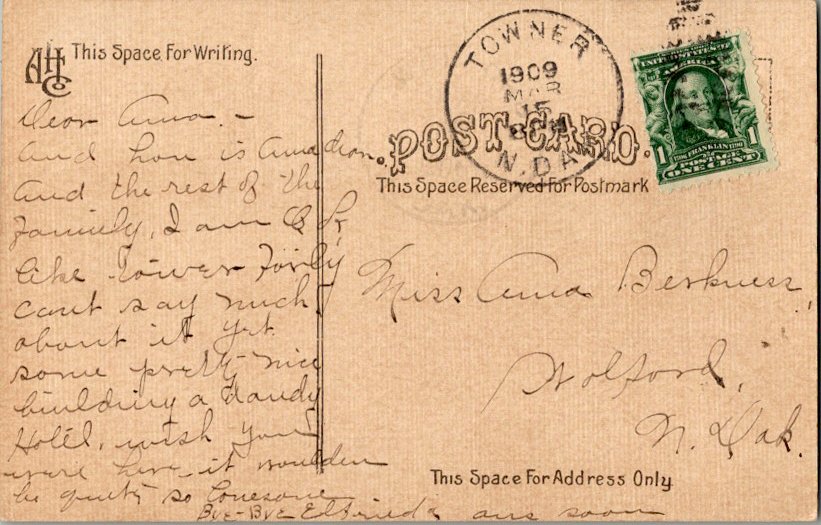 AHC Co
This Space For Writing.
Dear Anna. –
And how is Amadion.
And the rest of the
Family, I am O. K,
like Towner Fairly
cant say much
about it yet.
some pretty nice
building a dandy
Hotel, wish you
were here it woulden
be quite so lonesome
Bye-Bye Elfrieda ans soon
TOWNER
1909
MAR
15
N. DAK
POST CARD.
This Space Reserved For Postmark
UNITED STATES OF
AMERICA
1 FRANKLIN 1
POSTAGE
ONE CENT
Miss Anna Berkness,
Wolford,
N. Dak.
This Space For Address Only